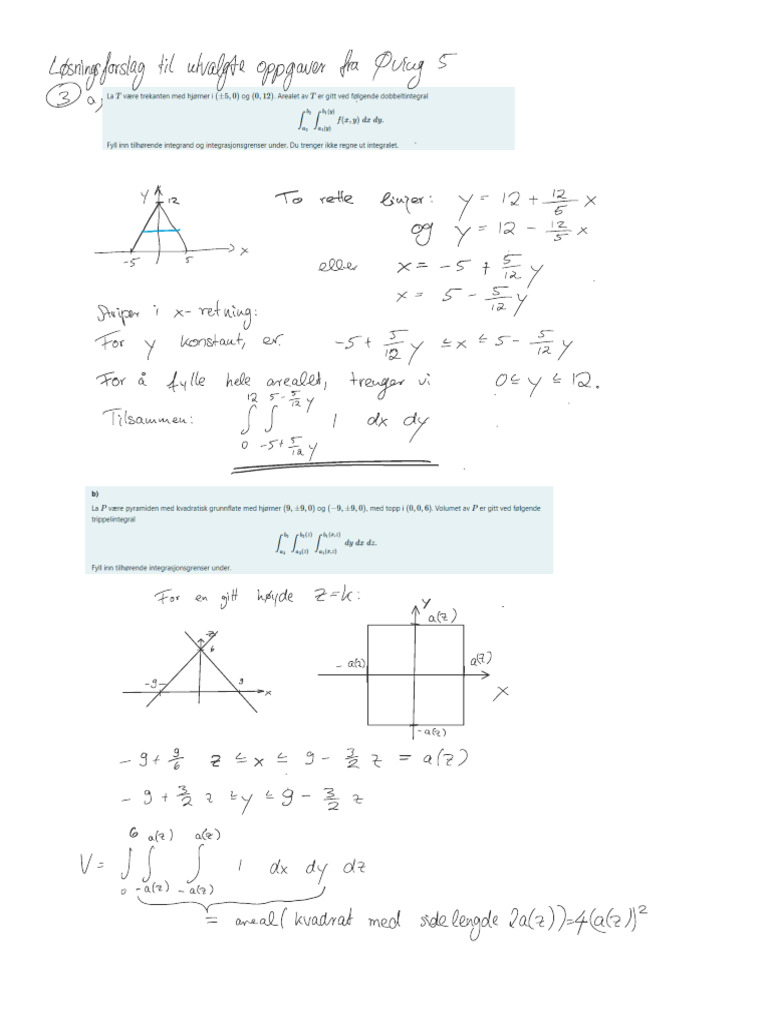 Løsningsforslag til utvalgte oppgaver fra Øving 5
3 a)
La T være trekanten med hjørner i (±5, 0) og (0, 12). Arealet av T er gitt ved følgende dobbeltintegral
∫_{a₂}^{b₂} ∫_{a₁(y)}^{b₁(y)} f(x, y) dx dy.
Fyll inn tilhørende integrand og integrasjonsgrenser under. Du trenger ikke regne ut integralet.
y 12
-5 5 x
To rette linjer: y = 12 + 12/5 x
og y = 12 - 12/5 x
eller x = -5 + 5/12 y
x = 5 - 5/12 y
Striper i x-retning:
For y konstant, er -5 + 5/12 y ≤ x ≤ 5 - 5/12 y
For å fylle hele arealet, trenger vi 0 ≤ y ≤ 12.
Tilsammen: ∫_{0}^{12} ∫_{-5+5/12 y}^{5-5/12 y} 1 dx dy
b)
La P være pyramiden med kvadratisk grunnflate med hjørner (9, ±9, 0) og (−9, ±9, 0), med topp i (0, 0, 6). Volumet av P er gitt ved følgende
trippelintegral
∫_{a₃}^{b₃} ∫_{a₂(z)}^{b₂(z)} ∫_{a₁(x,z)}^{b₁(x,z)} dy dx dz.
Fyll inn tilhørende integrasjonsgrenser under.
For en gitt høyde z=k:
z 6
-9 9 x
y a(z)
-a(z) a(z)
x
-a(z)
-9 + 9/6 z ≤ x ≤ 9 - 3/2 z = a(z)
-9 + 3/2 z ≤ y ≤ 9 - 3/2 z
V = ∫_{0}^{6} ∫_{-a(z)}^{a(z)} ∫_{-a(z)}^{a(z)} 1 dx dy dz
= areal(kvadrat med sidelengde 2a(z)) = 4(a(z))²